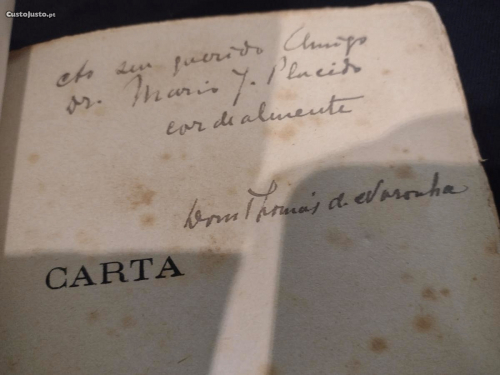 CustoJusto.pt
Ao seu querido Amigo
Dr. Mario J. Placido
cordealmente
Dom Thomás de Noronha
CARTA